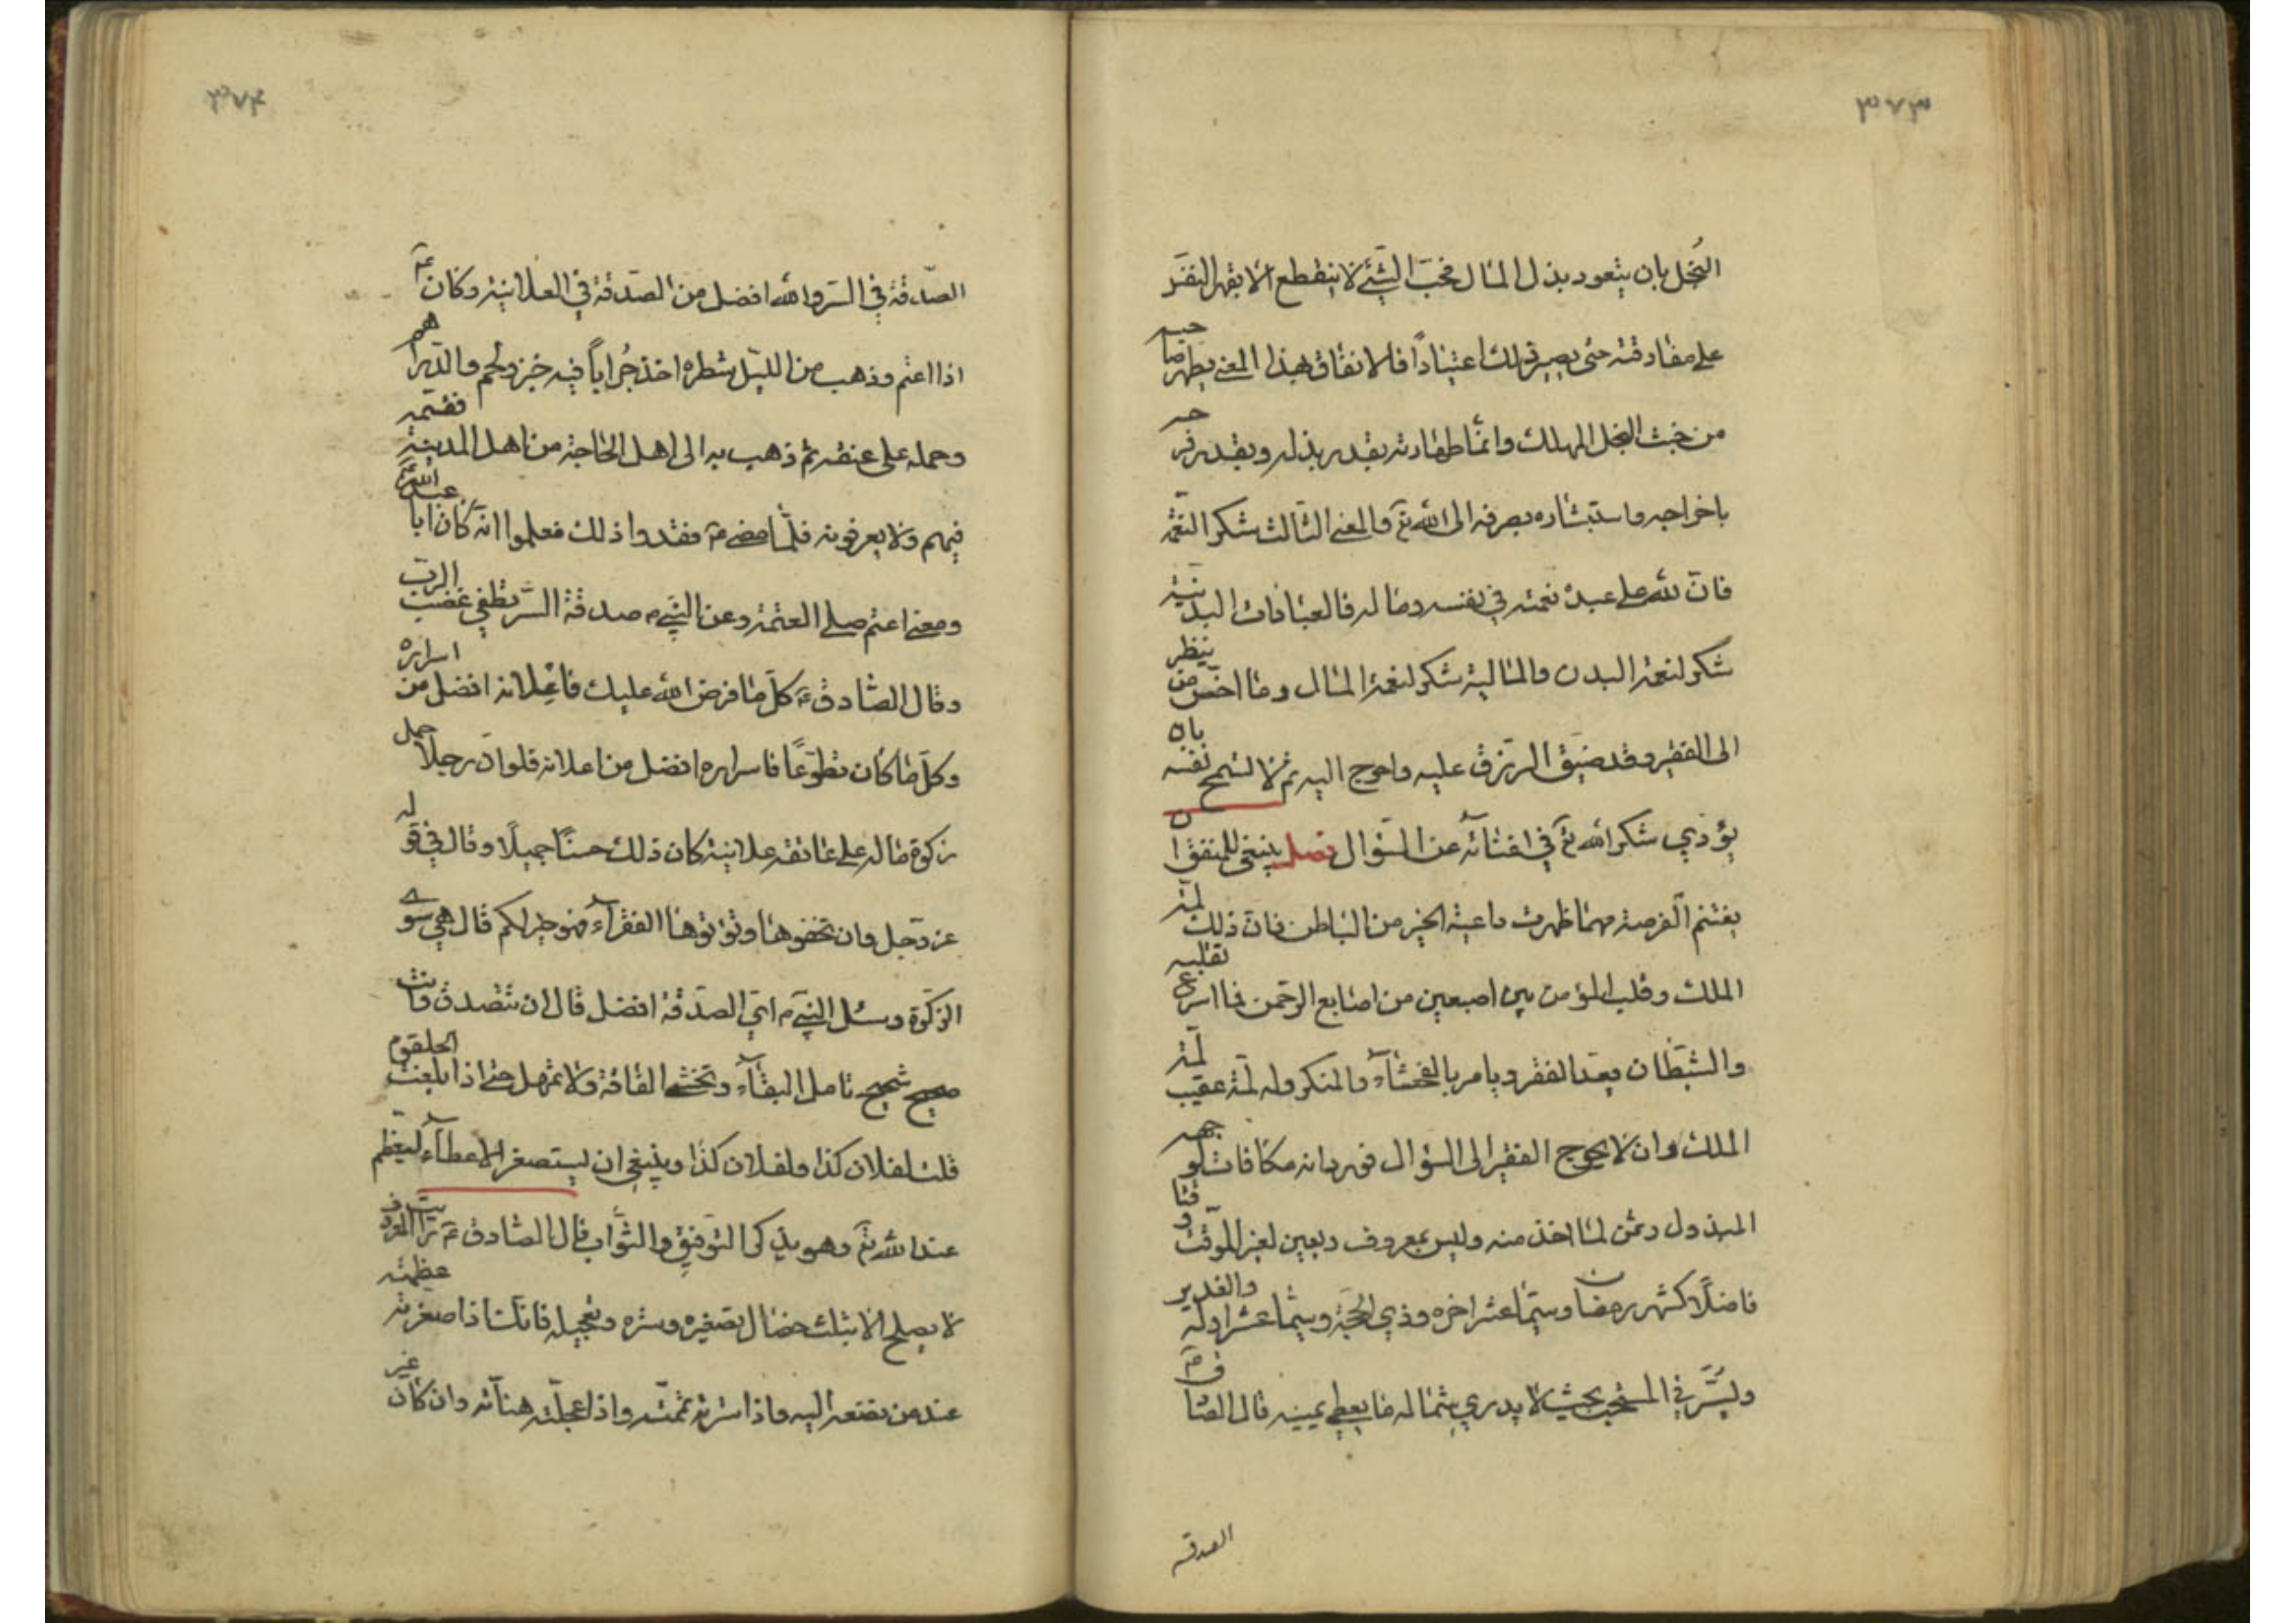 ٣٧٣
البُخل بان يتعود بذل المال فحبّ الشئ لا ينقطع الا بقهر النفس
على مفارقته حتى يصير ذلك اعتيادًا فالانفاق بهذا المعنى يطهر صاحبه
من خبث البخل المهلك وانما طهارته بقدر بذله وبقدر فرحه
باخراجه واستبشاره بصرفه الى الله تع والمعنى الثالث شكر النعمة
فان لله على عبده نعمته في نفسه وماله فالعبادات البدنيّة
شكر لنعمة البدن والمالية شكر لنعمة المال وما اخسّ من ينظر
الى الفقير وقد ضيّق الرّزق عليه واحوج اليه ثم لا تسمح نفسه بان
يؤدي شكر الله تع في اغنائه عن السّؤال فصل ينبغي للمنفق ان
يغتنم الفرصة مهما ظهرت داعية الخير من الباطن فان ذلك لمّة
الملك وقلب المؤمن بين اصبعين من اصابع الرحمن فما اسرع تقلبه
والشيطان يعد الفقر ويامر بالفحشآء والمنكر وله لمّة عقيب لمّة
الملك وان لا يحوج الفقير الى السؤال فورد انه مكافات لوجهه
المبذول وثمن لما اخذ منه وليس بمعروف ويعين لغير الموقّت وقتا
فاضلًا كشهر رمضان وسيّما عشر اخره وذي الحجّة وسيّما عشر اوله والغدير
وليسّر في المستحب بحيث لا يدري شماله ما يعطي يمينه قال الصادق ع
الصدقة
٣٧٤
الصّدقة في السّر والله افضل من الصّدقة في العلانية وكان ع
اذا اعتم وذهب من الليل شطره اخذ جُرابًا فيه خبز ولحم والدّراهم
وحمله على عنقه ثم ذهب به الى اهل الحاجة من اهل المدينة فقسّمه
فيهم ولا يعرفونه فلمّا مضى ع فقدوا ذلك فعلموا انّه كان ابا عبد الله ع
ومعنى اعتم صلى العتمة وعن النبي ص صدقة السّر تطفي غضب الربّ
وقال الصادق ع كلّ ما فرض الله عليك فاعلانه افضل من اسراره
وكلّ ما كان تطوّعًا فاسراره افضل من اعلانه فلو انّ رجلًا حمل
زكوة ماله على عاتقه علانية كان ذلك حسنًا جميلًا وقال في قوله
عز وجل وان تخفوها وتؤتوها الفقرآء فهو خير لكم قال هي سوى
الزكوة وسئل النبي ص اي الصدقة افضل قال ان تتصدق وانت
صحيح شحيح تامل البقآء وتخشى الفاقة ولا تمهل حتى اذا بلغت الحلقوم
قلت لفلان كذا ولفلان كذا وينبغي ان يستصغر الاعطآء ليعظم
عند الله تع وهو يذكر التوفيق والثواب قال الصادق ع رايت المعروف
لا يصلح الا بثلث خصال تصغيره وستره وتعجيله فانك اذا صغرته عظمته
عند من تصنعه اليه واذا سترته تممته واذا عجلته هنّأته وان كان غير